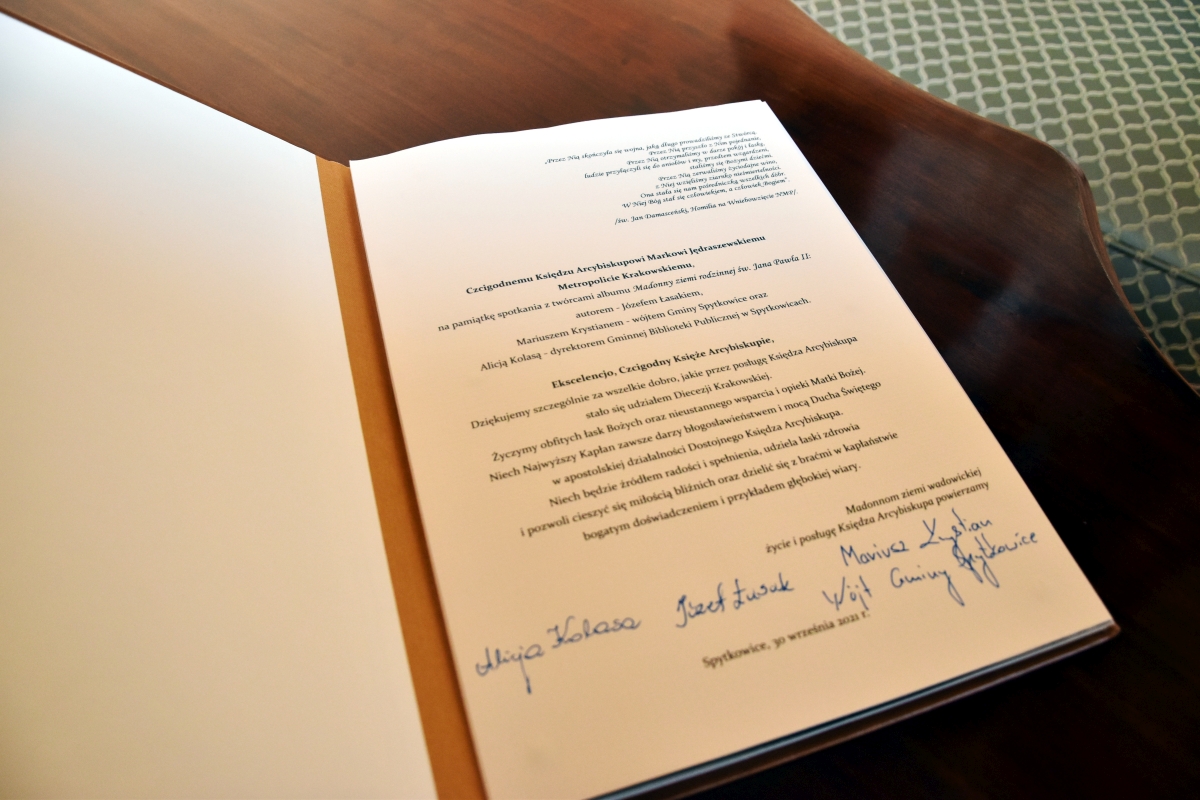 „Przez Nią skończyła się wojna, jaką długo prowadziliśmy ze Stwórcą,
Przez Nią przyszło z Nim pojednanie,
Przez Nią otrzymaliśmy w darze pokój i łaskę,
ludzie przyłączyli się do aniołów i my, przedtem wzgardzeni,
staliśmy się Bożymi dziećmi.
Przez Nią zerwaliśmy życiodajne wino,
z Niej wzięliśmy ziarnko nieśmiertelności.
Ona stała się nam pośredniczką wszelkich dóbr.
W Niej Bóg stał się człowiekiem, a człowiek Bogiem".
/św. Jan Damasceński, Homilia na Wniebowzięcie NMP/.
Czcigodnemu Księdzu Arcybiskupowi Markowi Jędraszewskiemu
Metropolicie Krakowskiemu,
na pamiątkę spotkania z twórcami albumu Madonny ziemi rodzinnej św. Jana Pawła II:
autorem - Józefem Łasakiem,
Mariuszem Krystianem - wójtem Gminy Spytkowice oraz
Alicją Kolasą - dyrektorem Gminnej Biblioteki Publicznej w Spytkowicach.
Ekscelencjo, Czcigodny Księże Arcybiskupie,
Dziękujemy szczególnie za wszelkie dobro, jakie przez posługę Księdza Arcybiskupa
stało się udziałem Diecezji Krakowskiej.
Życzymy obfitych łask Bożych oraz nieustannego wsparcia i opieki Matki Bożej.
Niech Najwyższy Kapłan zawsze darzy błogosławieństwem i mocą Ducha Świętego
w apostolskiej działalności Dostojnego Księdza Arcybiskupa.
Niech będzie źródłem radości i spełnienia, udziela łaski zdrowia
i pozwoli cieszyć się miłością bliźnich oraz dzielić się z braćmi w kapłaństwie
bogatym doświadczeniem i przykładem głębokiej wiary.
Madonnom ziemi wadowickiej
życie i posługę Księdza Arcybiskupa powierzamy
Mariusz Krystian
Alicja Kolasa Józef Łasak Wójt Gminy Spytkowice
Spytkowice, 30 września 2021 r.